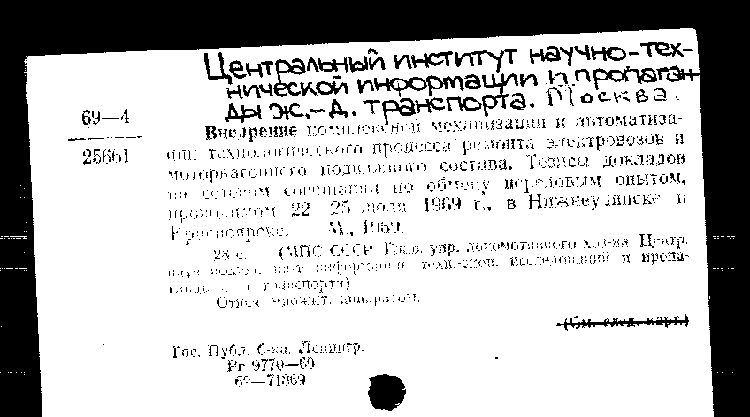 Центральный институт научно-тех-
нической информации и пропаган-
ды ж.-д. транспорта. Москва.
69—4
25661
Внедрение комплексной механизации и автоматиза-
ции технологического процесса ремонта электровозов и
моторвагонного подвижного состава. Тезисы докладов
на сетевом совещании по обмену передовым опытом,
проводимом 22—25 июля 1969 г., в Нижнеудинске и
Красноярске. М., 1969.
28 с. (МПС СССР. Глав. упр. локомотивного хоз-ва. Центр.
информации, исследований и пропа-
транспорта)
Отпеч. множит. аппаратом.
(См. след. карт.)
Гос. Публ. б-ка. Ленингр.
Рг 9770—69
69—71869